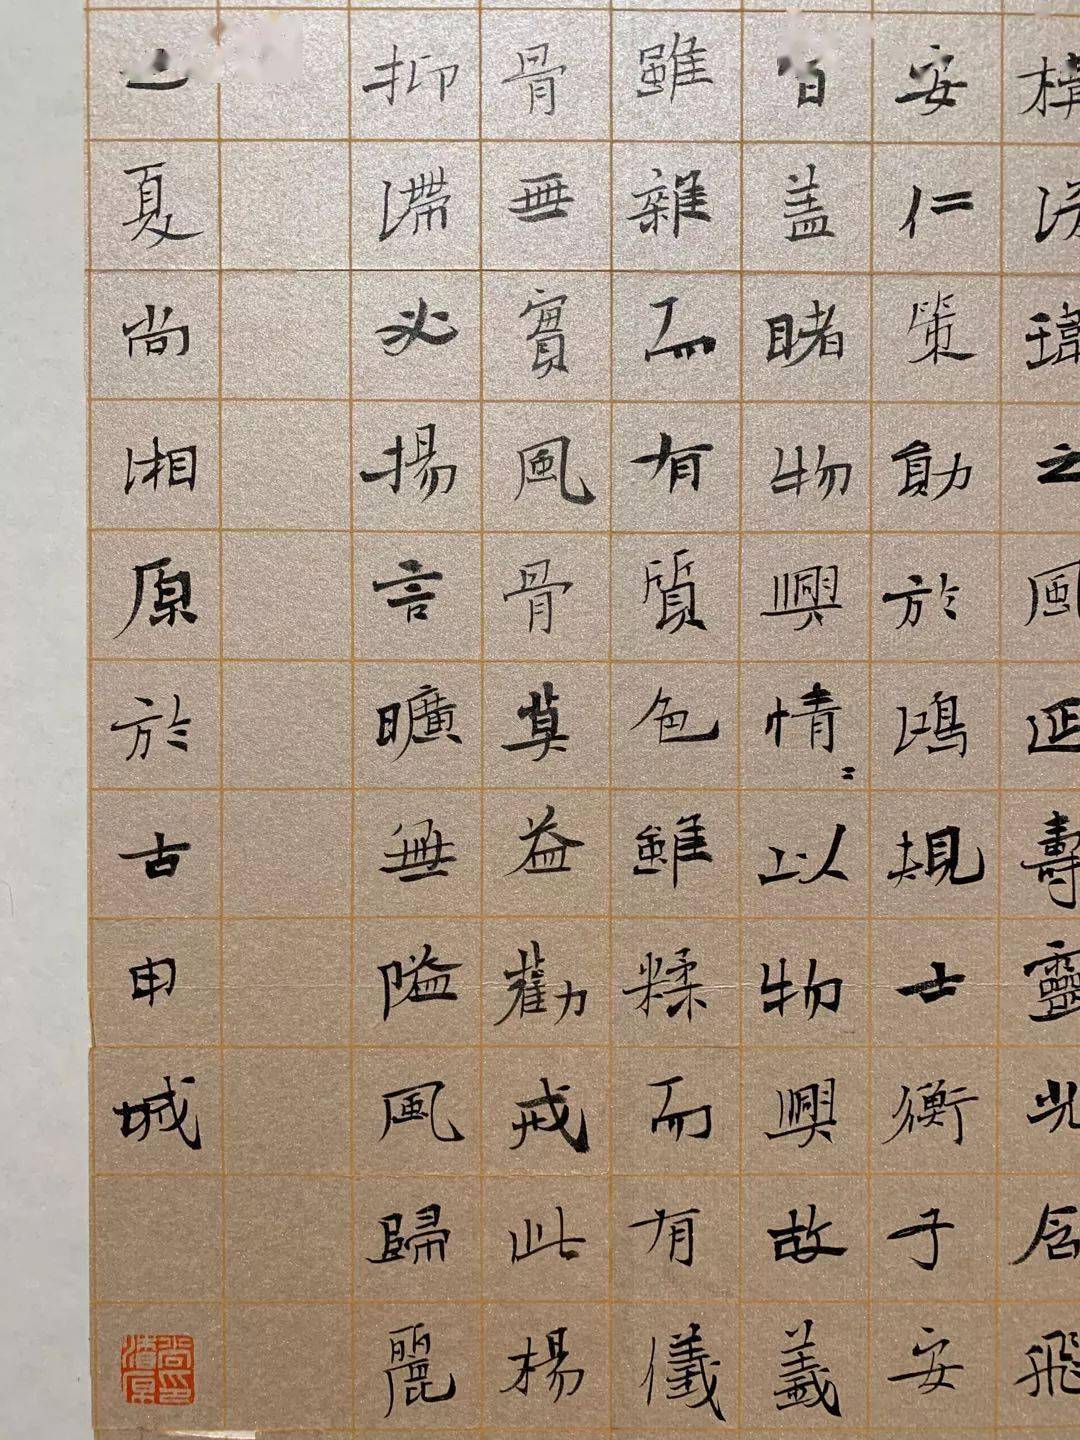 構深瑋之風延壽靈光含飛
安仁策勛於鴻規士衡子安
旨盖睹物興情〻以物興故義
雖雜而有質色雖糅而有儀
骨無實風骨莫益勸戒此楊
抑滯必揚言曠無隘風歸麗
夏尚湘原於古申城